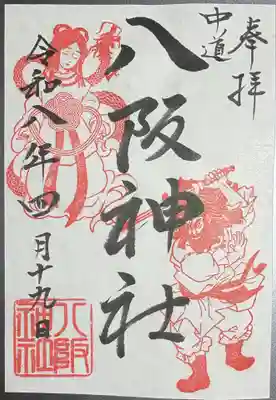 奉拝
中道
八阪神社
令和八年四月十九日
八阪
神社